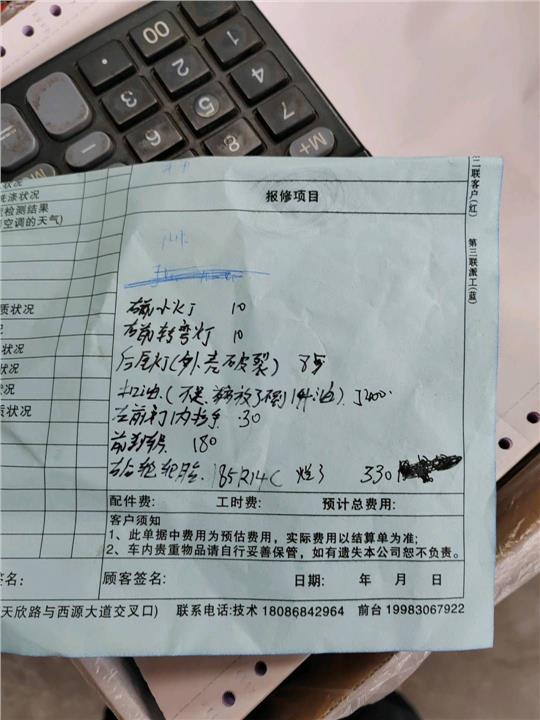 00
1
2
3
4
5
6
7
8
M+
M
状况
洗漆状况
检测结果
空调的天气)
质状况
况
状况
状况
质状况
报修项目
二联客户(红)
第三联派工(蓝)
右前小灯 10
右前转弯灯 10
后尾灯(外壳破裂) 85
30
前刹 180
右后轮轮胎 185R14C (烂) 330
配件费: 工时费: 预计总费用:
客户须知
1、此单据中费用为预估费用,实际费用以结算单为准;
2、车内贵重物品请自行妥善保管,如有遗失本公司恕不负责。
签名: 顾客签名: 日期: 年 月 日
天欣路与西源大道交叉口) 联系电话:技术 18086842964 前台 19983067922